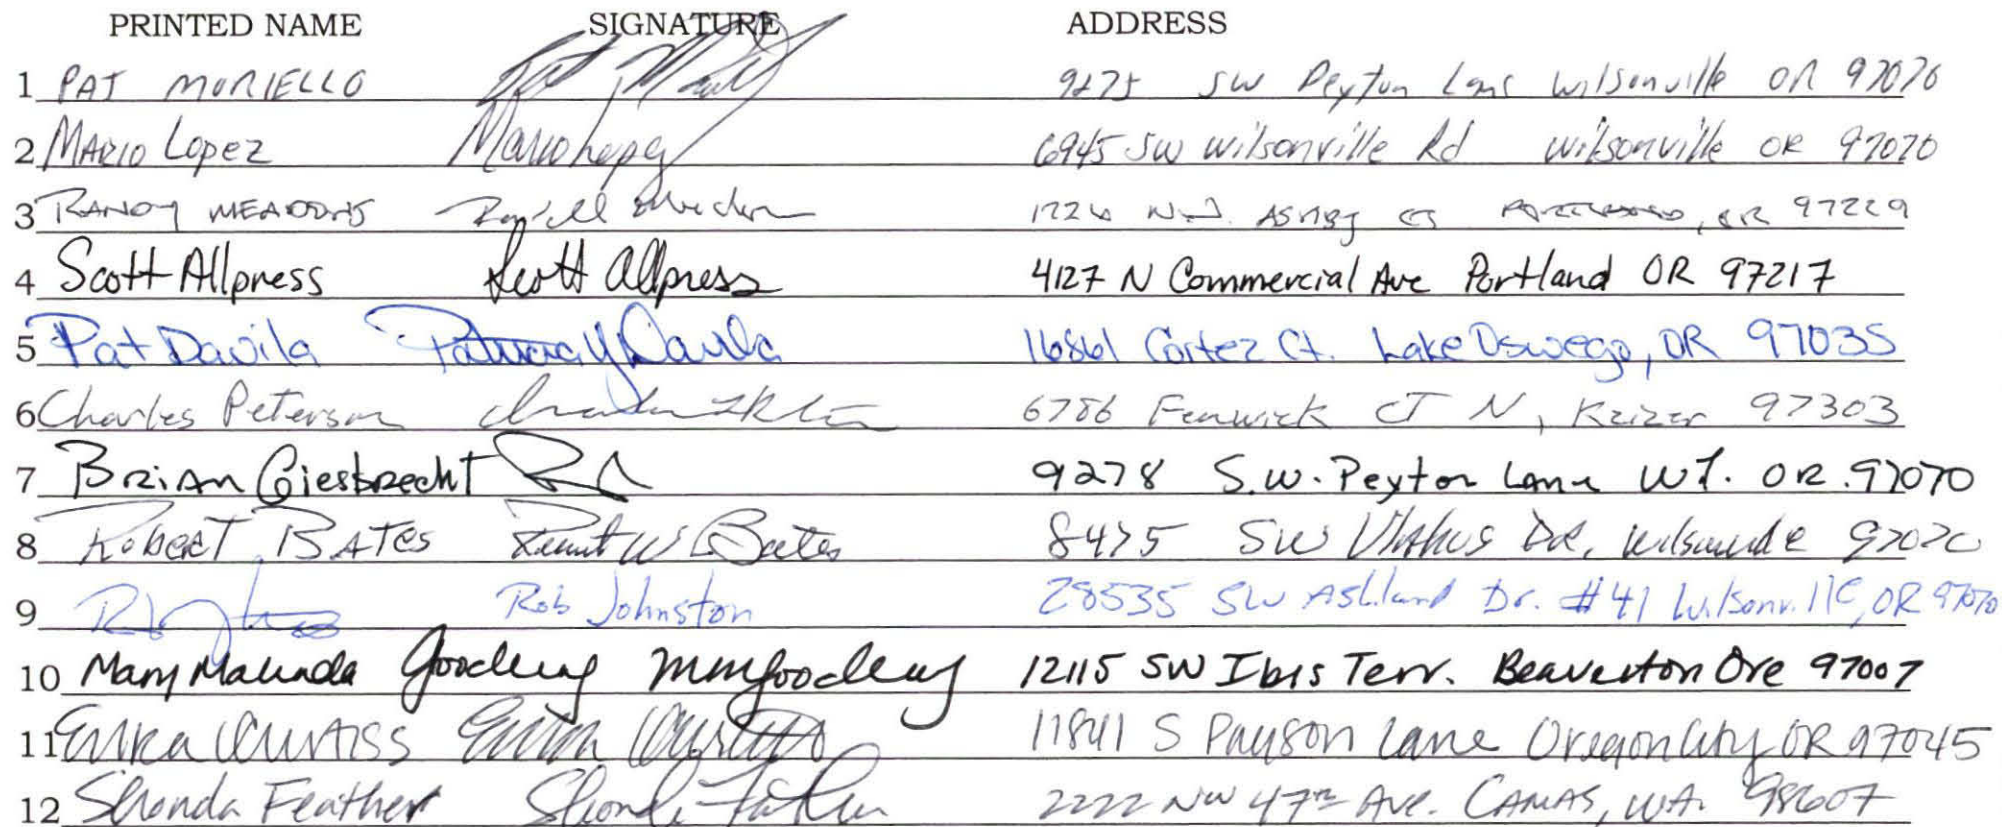 PRINTED NAME SIGNATURE ADDRESS
1 PAT MURIELLO 9275 SW Peyton Lane Wilsonville OR 97070
2 MARIO Lopez Mario Lopez 6945 SW Wilsonville Rd Wilsonville OR 97070
3 RANDY MEADOWS 1726 N.W. ASHBY CT PORTLAND, OR 97229
4 Scott Allpress Scott Allpress 4127 N Commercial Ave Portland OR 97217
5 Pat Davila Patricia Y Davila 16861 Cortez Ct. Lake Oswego, OR 97035
6 Charles Peterson 6786 Fenwick CT N, Keizer 97303
7 BRIAN Giesbrecht 9278 S.W. Peyton Lane WI. OR. 97070
8 Robert BATES Robert W Bates 8475 SW Dr, Wilsonville 97070
9 Rob Johnston 28535 SW Ashland Dr. #41 Wilsonville, OR 97070
10 Mary Malinda Gooding MMGooding 12115 SW Ibis Terr. Beaverton Ore 97007
11 Erika Curtiss Erika Curtiss 11841 S Payson Lane Oregon City OR 97045
12 Shonda Feather Shonda Feather 2222 NW 47th Ave. CAMAS, WA. 98607